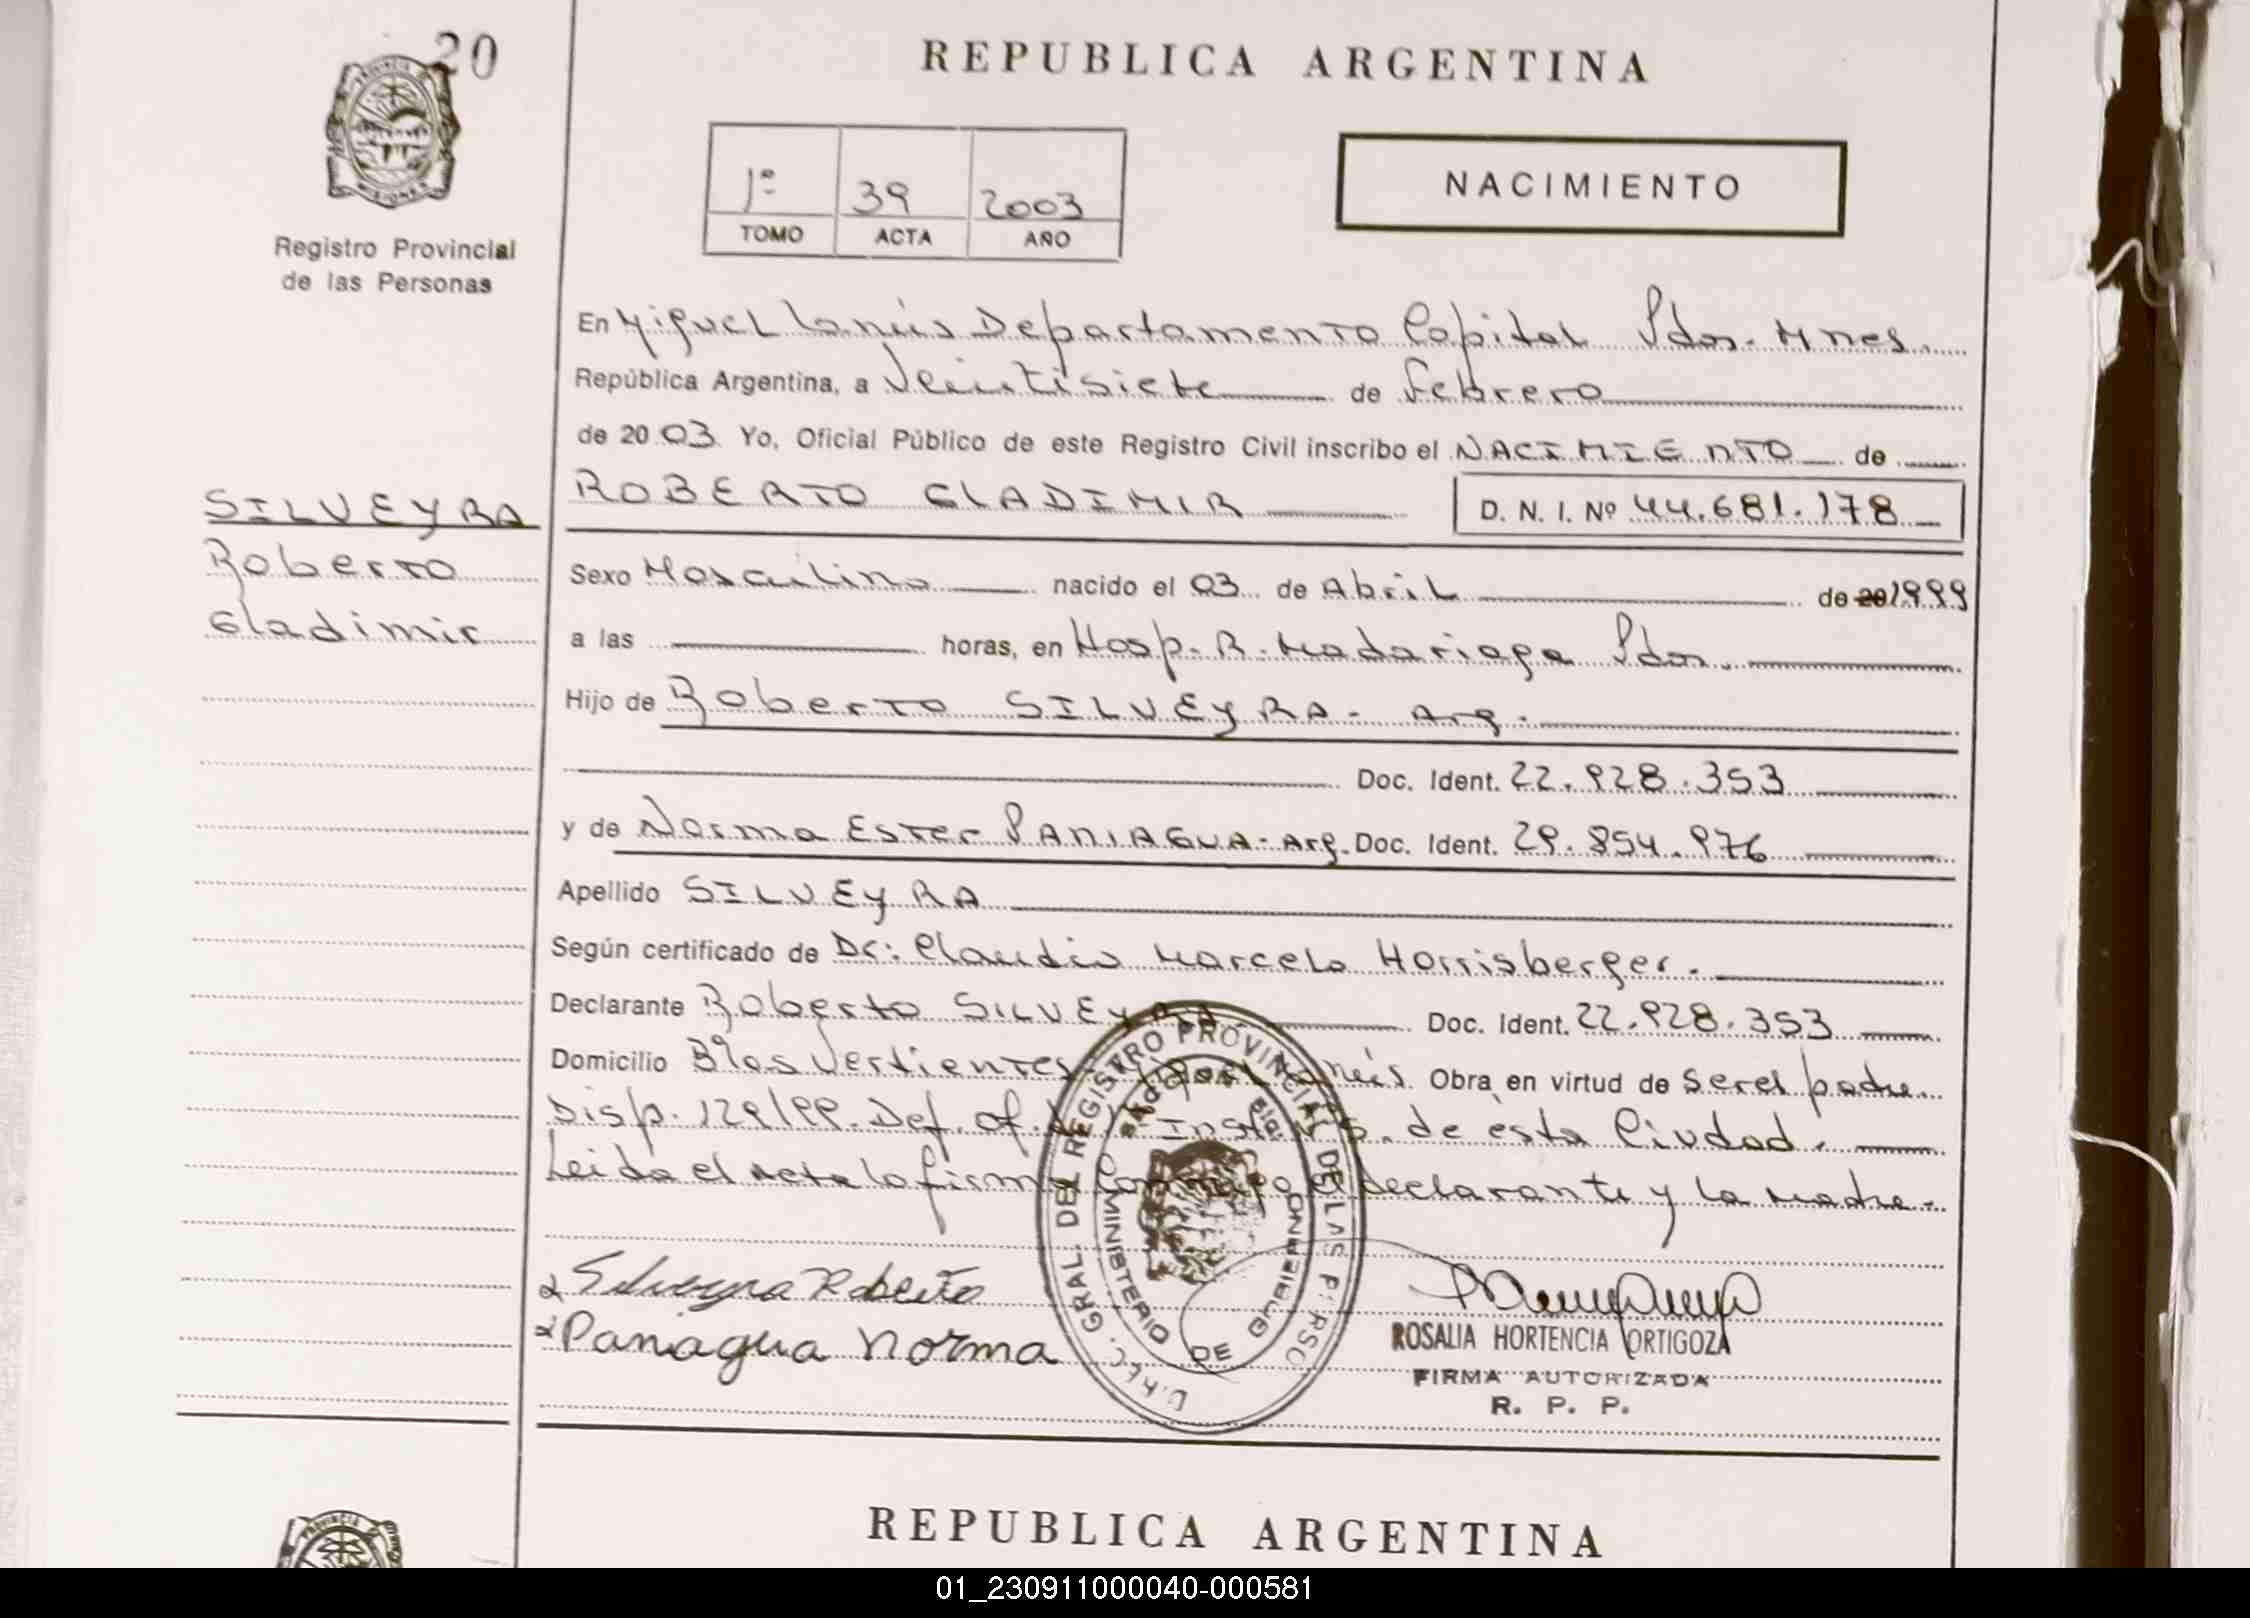 20
REPUBLICA ARGENTINA
1º 39 2003
TOMO ACTA AÑO
NACIMIENTO
Registro Provincial
de las Personas
SILVEYRA
Roberto
Gladimir
En Miguel Lanús Departamento Capital Pdas. Mnes.
República Argentina, a Veintisiete de Febrero
de 2003. Yo, Oficial Público de este Registro Civil inscribo el NACIMIENTO de
ROBERTO GLADIMIR D. N. I. Nº 44.681.178
Sexo Masculino nacido el 03 de Abril de 20 1999
a las horas, en Hosp. R. Madariaga Pdas.
Hijo de Roberto SILVEYRA - Arg.
Doc. Ident. 22.928.353
y de Norma Ester PANIAGUA - Arg. Doc. Ident. 29.854.976
Apellido SILVEYRA
Según certificado de Dr: Claudio Marcelo Horrisberger.
Declarante Roberto SILVEYRA Doc. Ident. 22.928.353
Domicilio Bº las Vertientes - Miguel Lanús Obra en virtud de ser el padre.
Disp. 129/99. Def. of. de Inst. de ésta Ciudad.
Leida el acta la firma conmigo el declarante y la madre.-
Silveyra Roberto
Paniagua Norma
ROSALIA HORTENCIA ORTIGOZA
FIRMA AUTORIZADA
R. P. P.
GRAL. DEL REGISTRO PROVINCIAL DE LAS PERSO
MINISTERIO DE GOBIERNO
REPUBLICA ARGENTINA
01_230911000040-000581